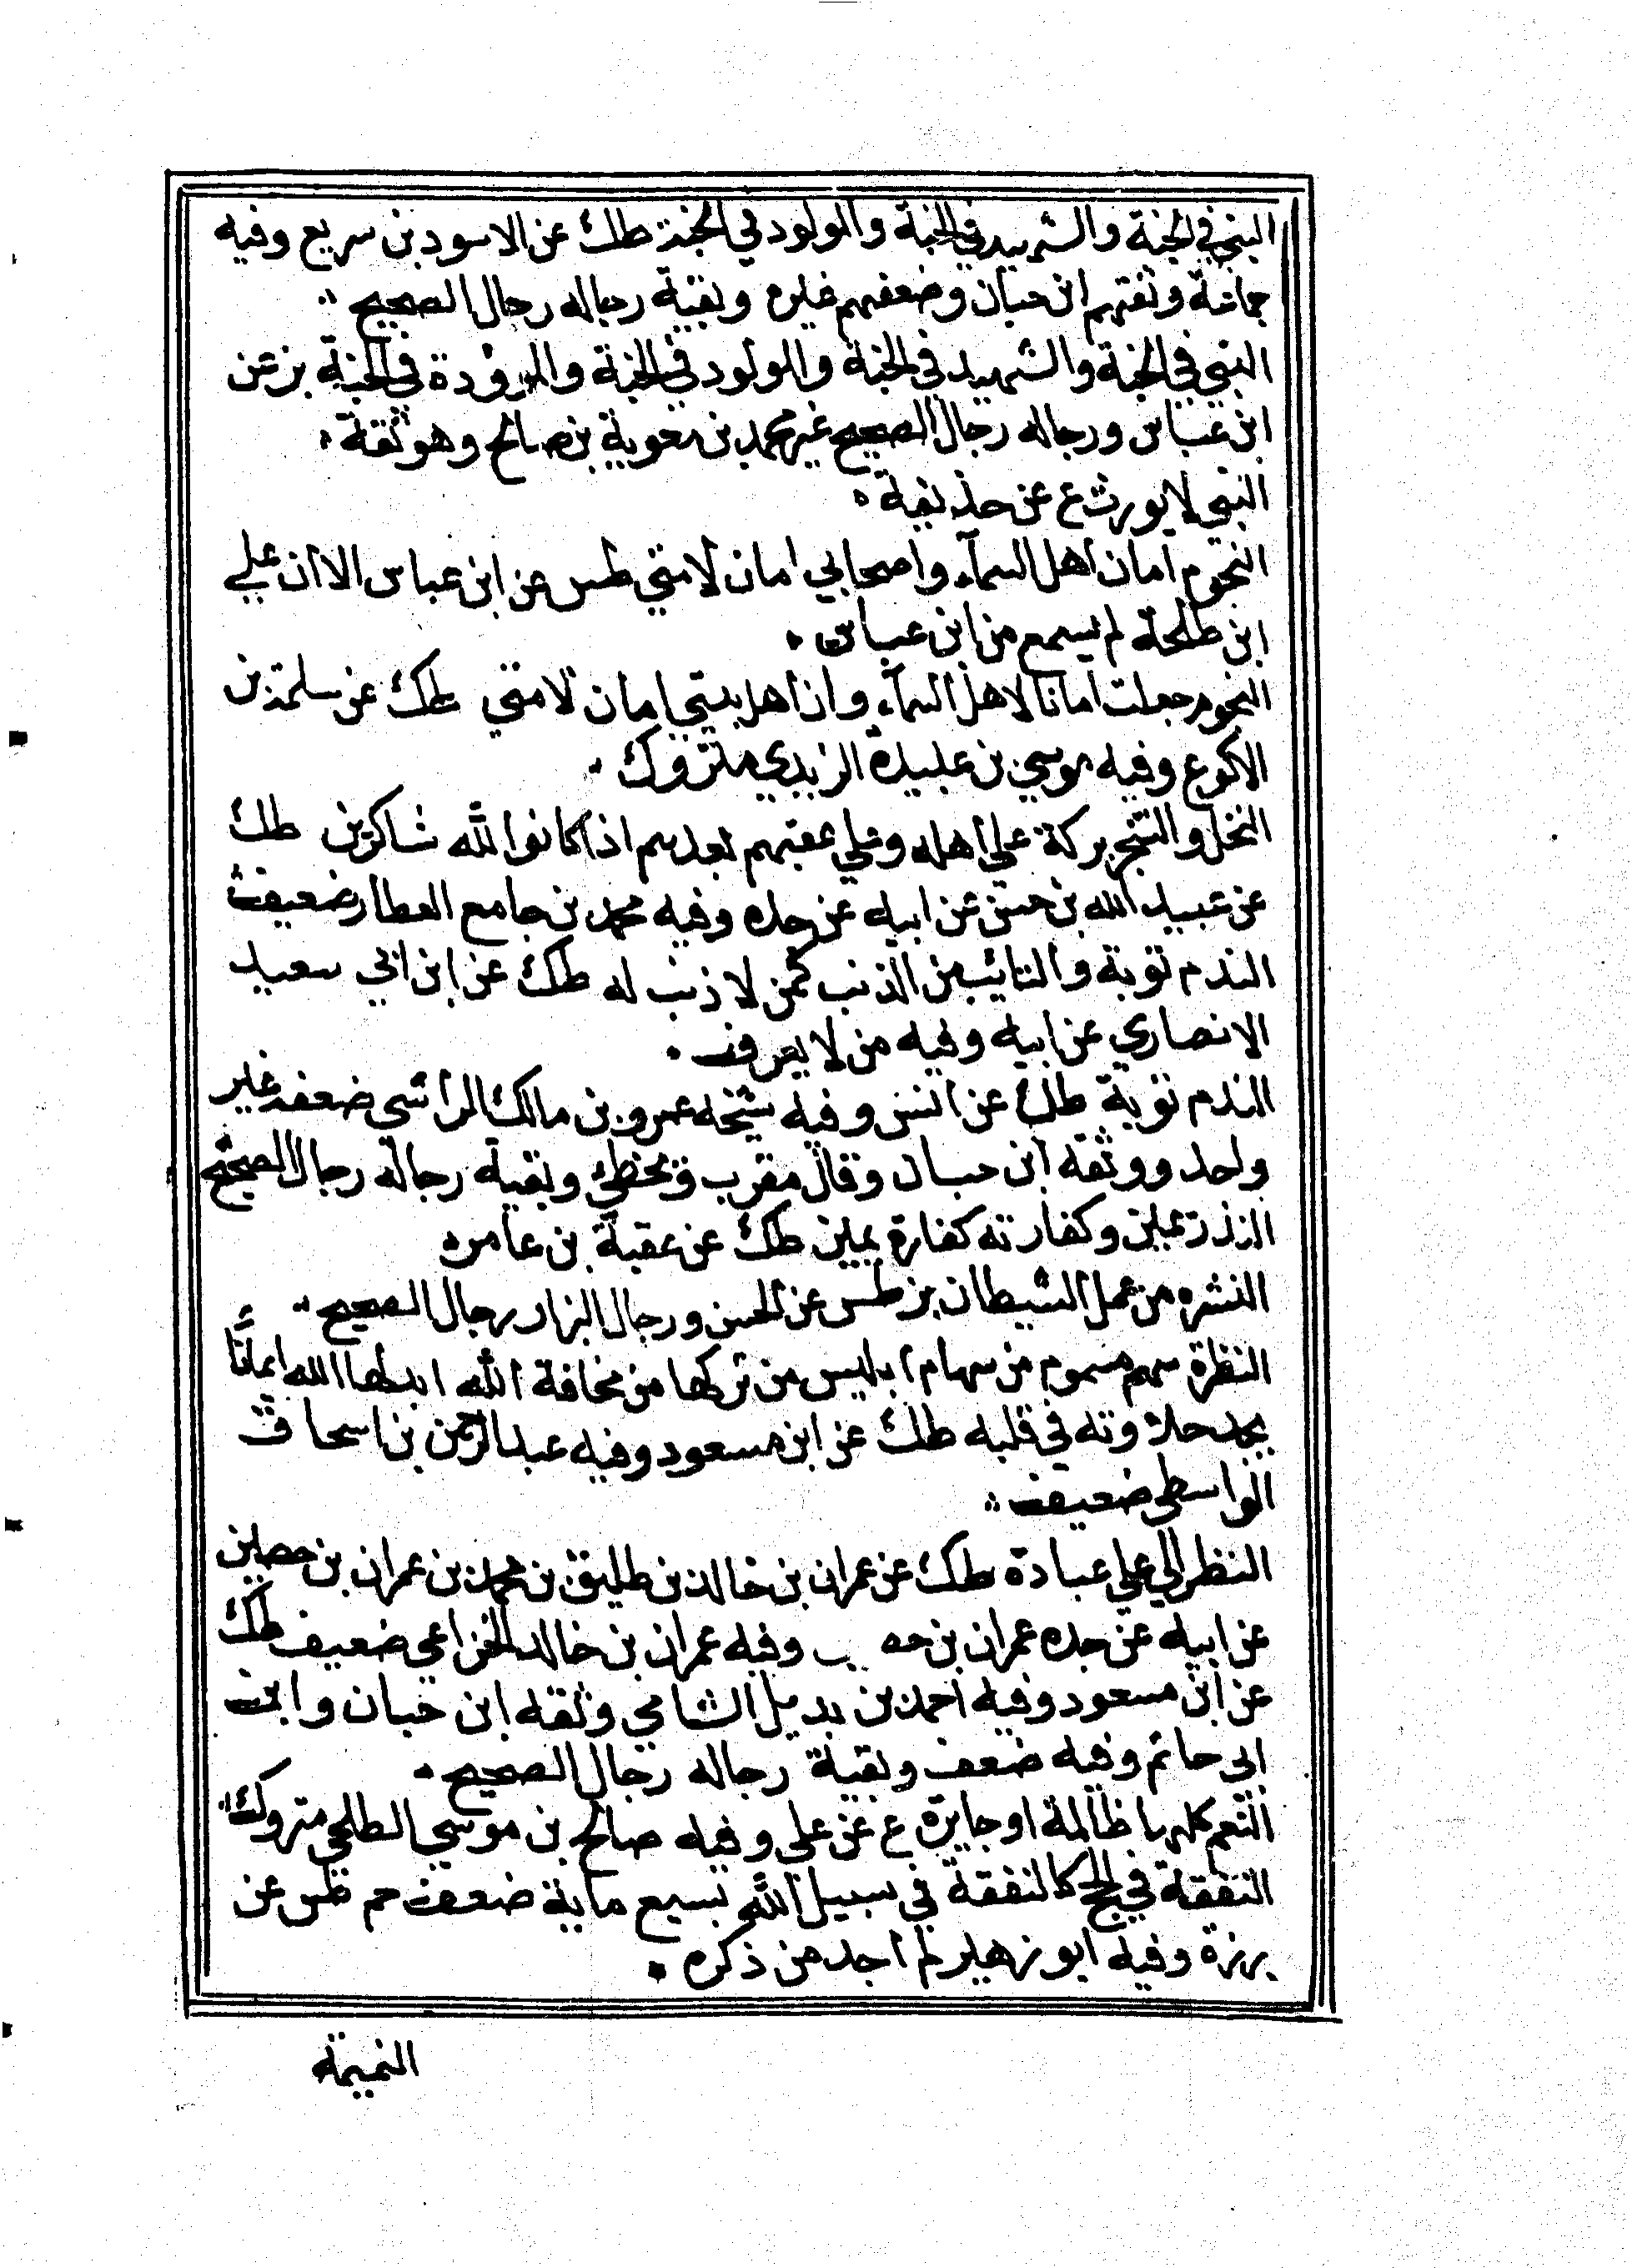 النبي في الجنة والشهيد في الجنة والمولود في الجنة طك عن الاسود بن سريع وفيه
جماعة وثقهم ابن حبان وضعفهم غيره وبقية رجاله رجال الصحيح
النبي في الجنة والشهيد في الجنة والمولود في الجنة والموؤدة في الجنة بز عن
ابن عباس ورجاله رجال الصحيح غير محمد بن معوية بن صالح وهو ثقة
النبي لا يورث ع عن حذيفة
النجوم امان اهل السمآء واصحابي امان لامتي طس عن ابن عباس الا ان علي
ابن طلحة لم يسمع من ابن عباس
النجوم جعلت امانا لاهل السمآء وان اهل بيتي امان لامتي طك عن سلمة بن
الاكوع وفيه موسي بن عبيدة الزبيدي متروك
النخل والشجر بركة علي اهله وعلي عقبهم بعدهم اذا كانوا لله شاكرين طك
عن عبيد الله بن حسن عن ابيه عن جده وفيه محمد بن جامع العطار ضعيف
الندم توبة والتائب من الذنب كمن لا ذنب له طك عن ابن ابي سعيد
الانصاري عن ابيه وفيه من لا يعرف
الندم توبة طك عن انس وفيه شيخه عمرو بن مالك الراسي ضعفه غير
واحد ووثقه ابن حبان وقال مقرب ويخطئ وبقية رجاله رجال الصحيح
النذر يمين وكفارته كفارة يمين طك عن عقبة بن عامر
النشره من عمل الشيطان بز طس عن الحسن ورجال البزار رجال الصحيح
النظرة سهم مسموم من سهام ابليس من تركها من مخافة الله ابدلها الله ايمانًا
يجد حلاوته في قلبه طك عن ابن مسعود وفيه عبد الرحمن بن اسحاق
الواسطي ضعيف
النظر الي علي عبادة طك عن عمران بن خالد بن طليق بن محمد بن عمران بن حصين
عن ابيه عن جده عمران بن وفيه عمران بن خالد الخزاعي ضعيف طك
عن ابن مسعود وفيه احمد بن بديل الشامي وثقه ابن حبان وابن
ابي حاتم وفيه ضعف وبقية رجاله رجال الصحيح
النعم كلها ظالمة او جايرة ع عن علي وفيه صالح بن موسي الطلحي متروك
النفقة في الحج كالنفقة في سبيل الله بسبع ماية ضعف حم طس عن
برزة وفيه ابو زهير لم اجد من ذكره
النميمة